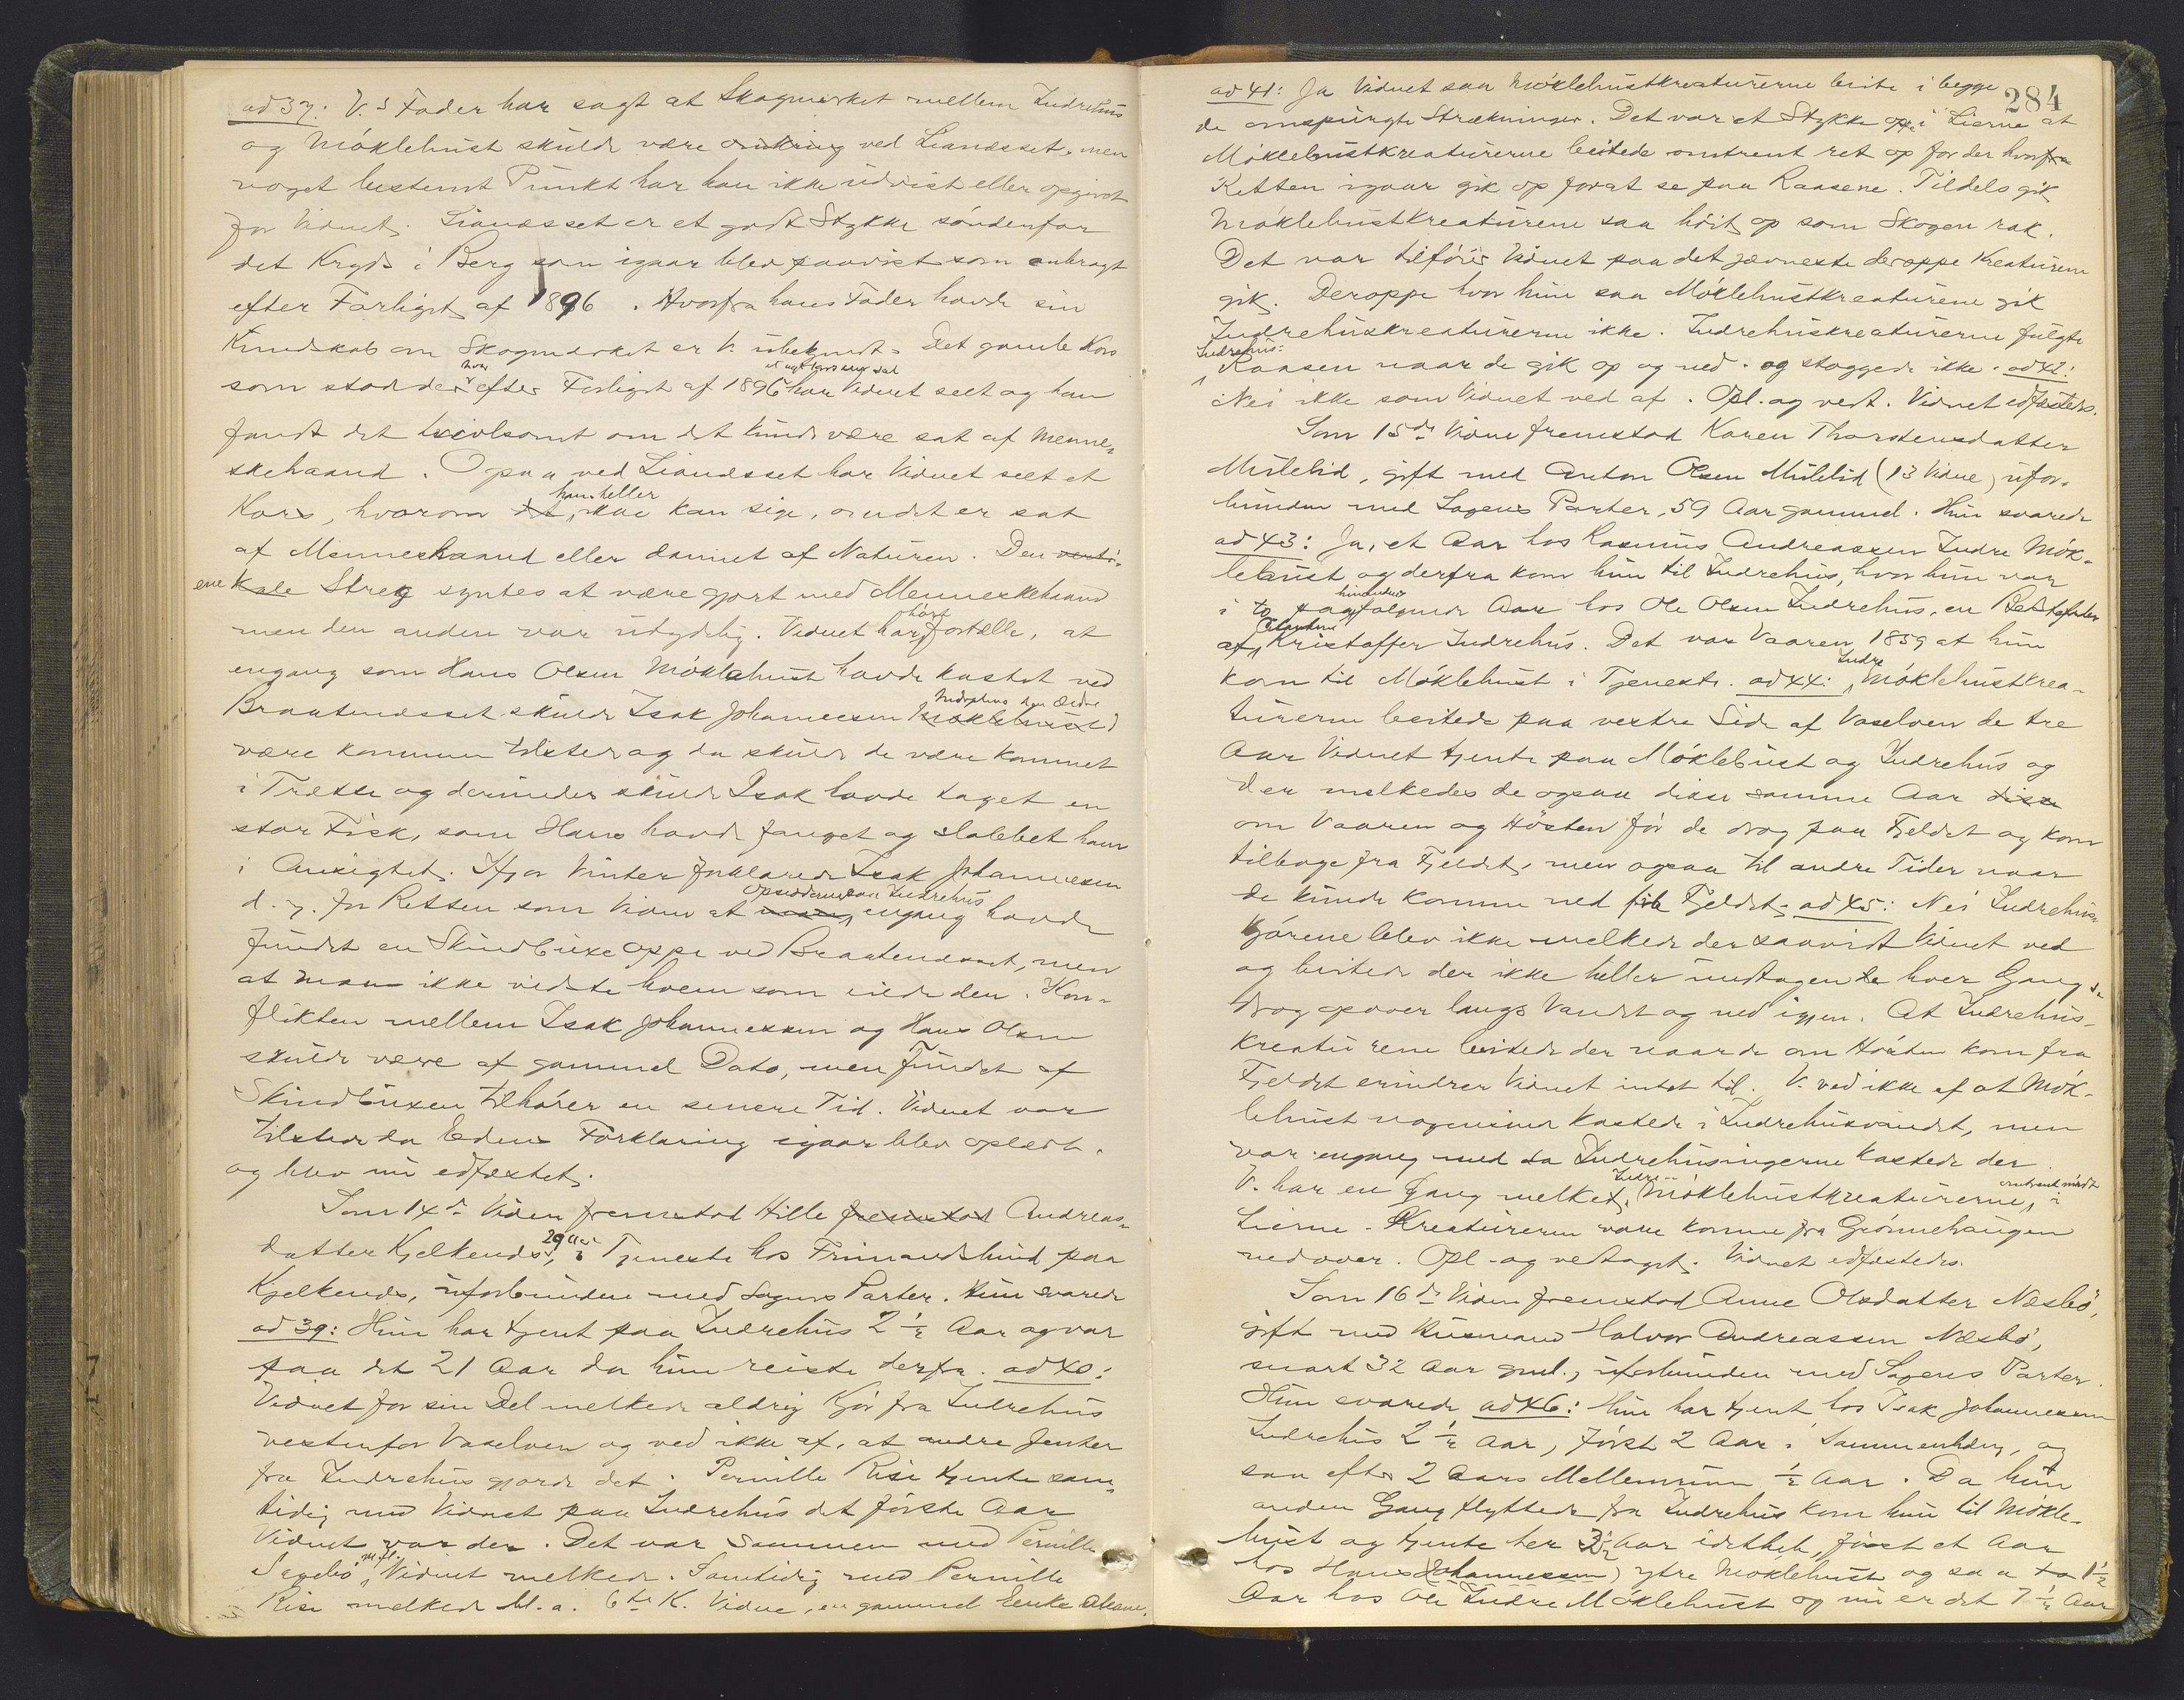 ad 37: V.s Fader har sagt at Skogmerket mellem Indrehus
og Möklebust skulde være omkring ved Lianesset, men
noget bestemt Punkt har han ikke udvist eller opgivet
for Vidnet. Lianesset er et godt Stykke söndenfor
det Kryds i Berg som igaar blev paavist som anbragt
efter Forliget af 1896. Hvorfra hans Fader havde sin
Kundskab om Skogmerket er V. ubekjendt. Det gamle Kors
som stod der hvor efter Forliget af 1896 et nyt Kors er sat har Vidnet seet og han
fandt det tvivlsomt om det kunde være sat af Menne-
skehaand. Ogsaa ved Lianesset har Vidnet seet et
Kors, hvorom han heller ikke kan sige, om det er sat
af Menneskehaand eller dannet af Naturen. Den verti-
ene kale Streg syntes at være gjort med Menneskehaand
men den anden var utydelig. Vidnet har hört fortælle, at
engang som Hans Olsen Möklebust havde kastet ved
Braatenesset skulde Isak Johannessen Indrehus den Ældre
være kommen tilstede og da skulde de være kommet
i Trætte og derunder skulde Isak havde taget en
stor Fisk, som Hans havde fanget og slabbet ham
i Ansigtet. Ifjor Vinter forklarede Isak Johannessen
d. y. for Retten som Vidne at Opsidderne paa Indrehus engang havde
fundet en Skindbuxe oppe ved Braatenesset, men
at man ikke vidste hvem som eiede den. Kon-
flikten mellem Isak Johannessen og Hans Olsen
skulde være af gammel Dato, men fundet af
Skindbuxen tilhörer en senere Tid. Vidnet var
tilstede da Edens Forklaring igaar blev oplæst.
og blev nu edfæstet.
Som 14de Vidne fremstod Hille fremstod Andreas-
datter Kjelkenes, 29 Aar, i Tjeneste hos Frimandslund paa
Kjelkenes, uforbunden med Sagens Parter. Hun svarede
ad 39: Hun har tjent paa Indrehus 2 1/2 Aar og var
paa det 21 Aar da hun reiste derfra. ad 40:
Vidnet for sin Del melkede aldrig Kjör fra Indrehus
vestenfor Vaselven og ved ikke af, at andre Jenter
fra Indrehus gjorde det. Pernille Risi tjente sam-
tidig med Vidnet paa Indrehus det förste Aar
Vidnet var der. Det var sammen med Pernille
Sagebö m.fl. Vidnet melkede. Samtidig med Pernille
Risi melkede bl. a. 6te K. Vidne, en gammel Enke
284
ad 41: Ja Vidnet saa Möklebustkreaturerne beite i begge
de omspurgte Strækninger. Det var et Stykke op i Lierne at
Möklebustkreaturerne beitede omtrent ret op for der hvorfra
Retten igaar gik op forat se paa Raasene. Tildels gik
Möklebustkreaturerne saa höit op som Skogen rak.
Det var tilföier Vidnet paa det jævneste deroppe Kreaturene
gik. Deroppe hvor hun saa Möklebustkreaturene gik
Indrehuskreaturerne ikke. Indrehuskreaturerne fulgte
Indrehus: Raasen naar de gik op og ned. og staggede ikke. ad 42:
Nei ikke som Vidnet ved af. Opl. og vedt. Vidnet edfæstedes.
Som 15de Vidne fremstod Karen Thorstensdatter
Mulelid, gift med Anton Olsen Mulelid (13 Vidne) ufor-
bunden med Sagens Parter, 59 Aar gammel. Hun svarede
ad 43: Ja, et Aar hos Rasmus Andreassen Indre Mök-
lebust, og derfra kom hun til Indrehus, hvor hun var
i to paa hinanden fölgende Aar hos Ole Olsen Indrehus, en Bedstefader
af Citanten Kristoffer Indrehus. Det var Vaaren 1859 at hun
kom til Möklebust i Tjeneste. ad 44: Indre Möklebustkrea-
turerne beitede paa vestre Side af Vaselven de tre
Aar Vidnet tjente paa Möklebust og Indrehus og
der melkedes de ogsaa disse samme Aar disse
om Vaaren og Hösten för de drog paa Fjeldet og kom
tilbage fra Fjeldet, men ogsaa til andre Tider naar
de kunde komme ned fra Fjeldet. ad 45: Nei Indrehus-
kjörene blev ikke melkede der saavidt Vidnet ved
og beitede der ikke heller undtagen de hver Gang de
drog opover langs Vandet og ned igjen. At Indrehus-
kreaturene beitede der naar de om Hösten kom fra
Fjeldet erindrer Vidnet intet til. V. ved ikke af at Mök-
lebust nogensinde kastede i Indrehusvandet, men
var engang med da Indrehusingerne kastede der.
V. har en Gang melket Indre Möklebustkreaturerne, omtrent midt i
Lierne. Kreaturerne vare komne fra Grönnehaugen
nedover. Opl. og vedtaget. Vidnet edfæstedes.
Som 16de Vidne fremstod Anne Olsdatter Næsbö,
gift med Husmand Halvor Andreassen Næsbö,
snart 32 Aar gml., uforbunden med Sagens Parter.
Hun svarede ad 46: Hun har tjent hos Isak Johannessen
Indrehus 2 1/2 Aar, förft 2 Aar i Sammenhæng, og
saa efter 2 Aars Mellemrum 1/2 Aar. Da hun
anden Gang flyttede fra Indrehus kom hun til Mökle-
bust og tjente her 2 1/2 Aar idethele, först et Aar
hos Hans (Johannessen) ytre Möklebust og saa to 1 1/2
Aar hos Ole Indre Möklebust og nu er det 7 1/2 Aar